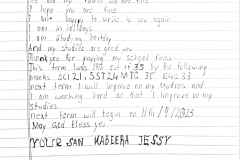 I hope you are fine
happy to write to you again
I am in holidays
I am studying
And my studies are good
Thank you for paying my school fees.
This term I was 17th out of 35 by the following
Marks SCI 21, SST 24 MTC 35 EGS 33
next term I will improve on my studies and
I am working hard so that I improve on my
studies
next term will begin on 11th/9/2023
May God bless you
YOUR SAN KABEERA JESSY